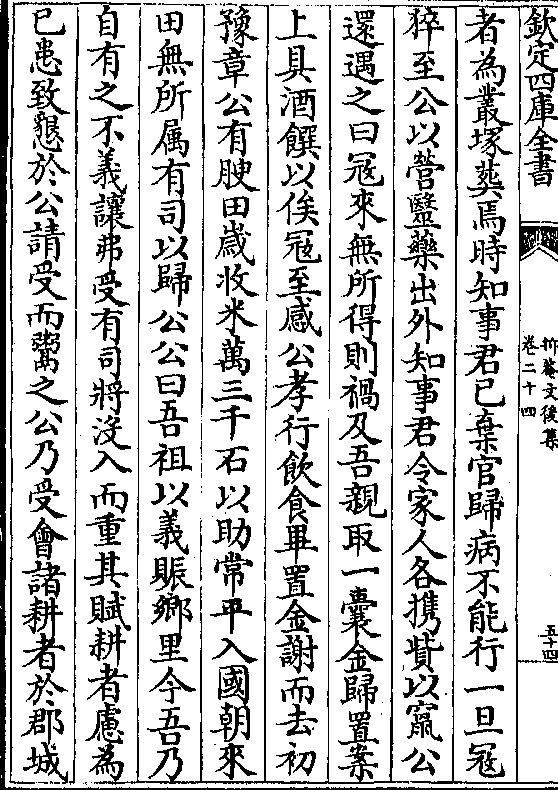 欽定四庫全書
抑菴文後集
卷二十四
五十四
者為叢塚葬焉時知事君已棄官歸病不能行一旦冦
猝至公以營醫藥出外知事君令家人各携貲以竄公
還遇之曰冦來無所得則禍及吾親取一囊金歸置案
上具酒饌以俟冦至感公孝行飲食畢置金謝而去初
豫章公有腴田歲收米萬三千石以助常平入國朝來
田無所属有司以歸公公曰吾祖以義賑鄉里今吾乃
自有之不義讓弗受有司將没入而重其賦耕者慮為
已患致懇於公請受而鬻之公乃受會諸耕者於郡城